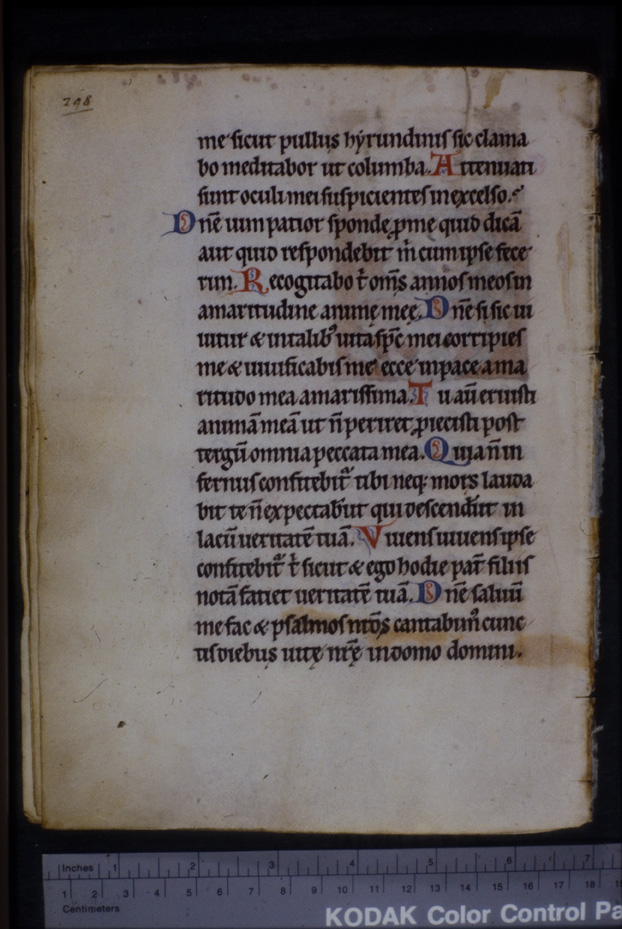 298
me sicut pulluſ hẏrundiniſ ſic clama
bo meditabor ut columba. Attenuati
ſunt oculi mei ſuſpicienteſ in excelſo.
Dn̄e uim patior ſponde ꝓ me quid dicā
aut quid reſpondebit m̄ cum ipſe fece
rim. Recogitabo t̄ om̄s annoſ meoſ in
amaritudine animę meę. Dn̄e ſi ſic ui
uitur & in talib' uita ſpc̄ mei corripieſ
me & uiuificabiſ me ecce in pace ama
ritudo mea amariſſima. Tu aūt eruiſti
animā meā ut n̄ periret ꝓiecisti poſt
tergū omnia peccata mea. Quia n̄ in
fernuſ confitebit̄ tibi neq; morſ lauda
bit te n̄ expectab̄ut qui deſcendūt in
lacū ueritatē tuā. Viuenſ uiuenſ ipſe
confitebit̄ t̄ ſicut & ego hodie pat̄ filiiſ
notā faciet ueritatē tuā. Dn̄e ſaluū
me fac & pſalmoſ nr̄os cantabim' cunc
tiſ diebuſ uitę nr̄ę in domo domini.
Inches 1 2 3 4 5 6 7
1 2 3 4 5 6 7 8 9 10 11 12 13 14 15 16 17 18
Centimeters
KODAK Color Control Pa